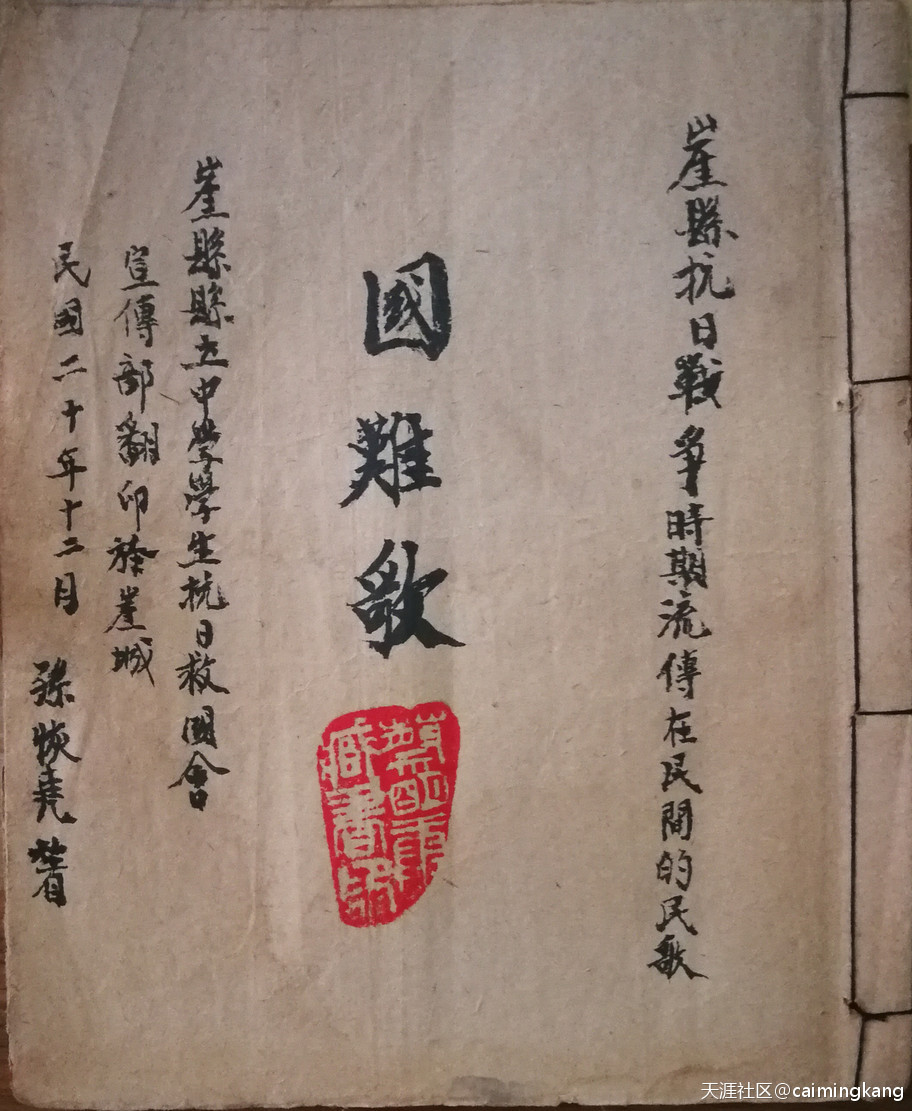 崖縣抗日戰爭時期流傳在民間的民歌
國難歌
崖縣縣立中學學生抗日救國會
宣傳部翻印於崖城
民國二十年十二月
孫 堯著
藏書印
天涯社区@caimingkang